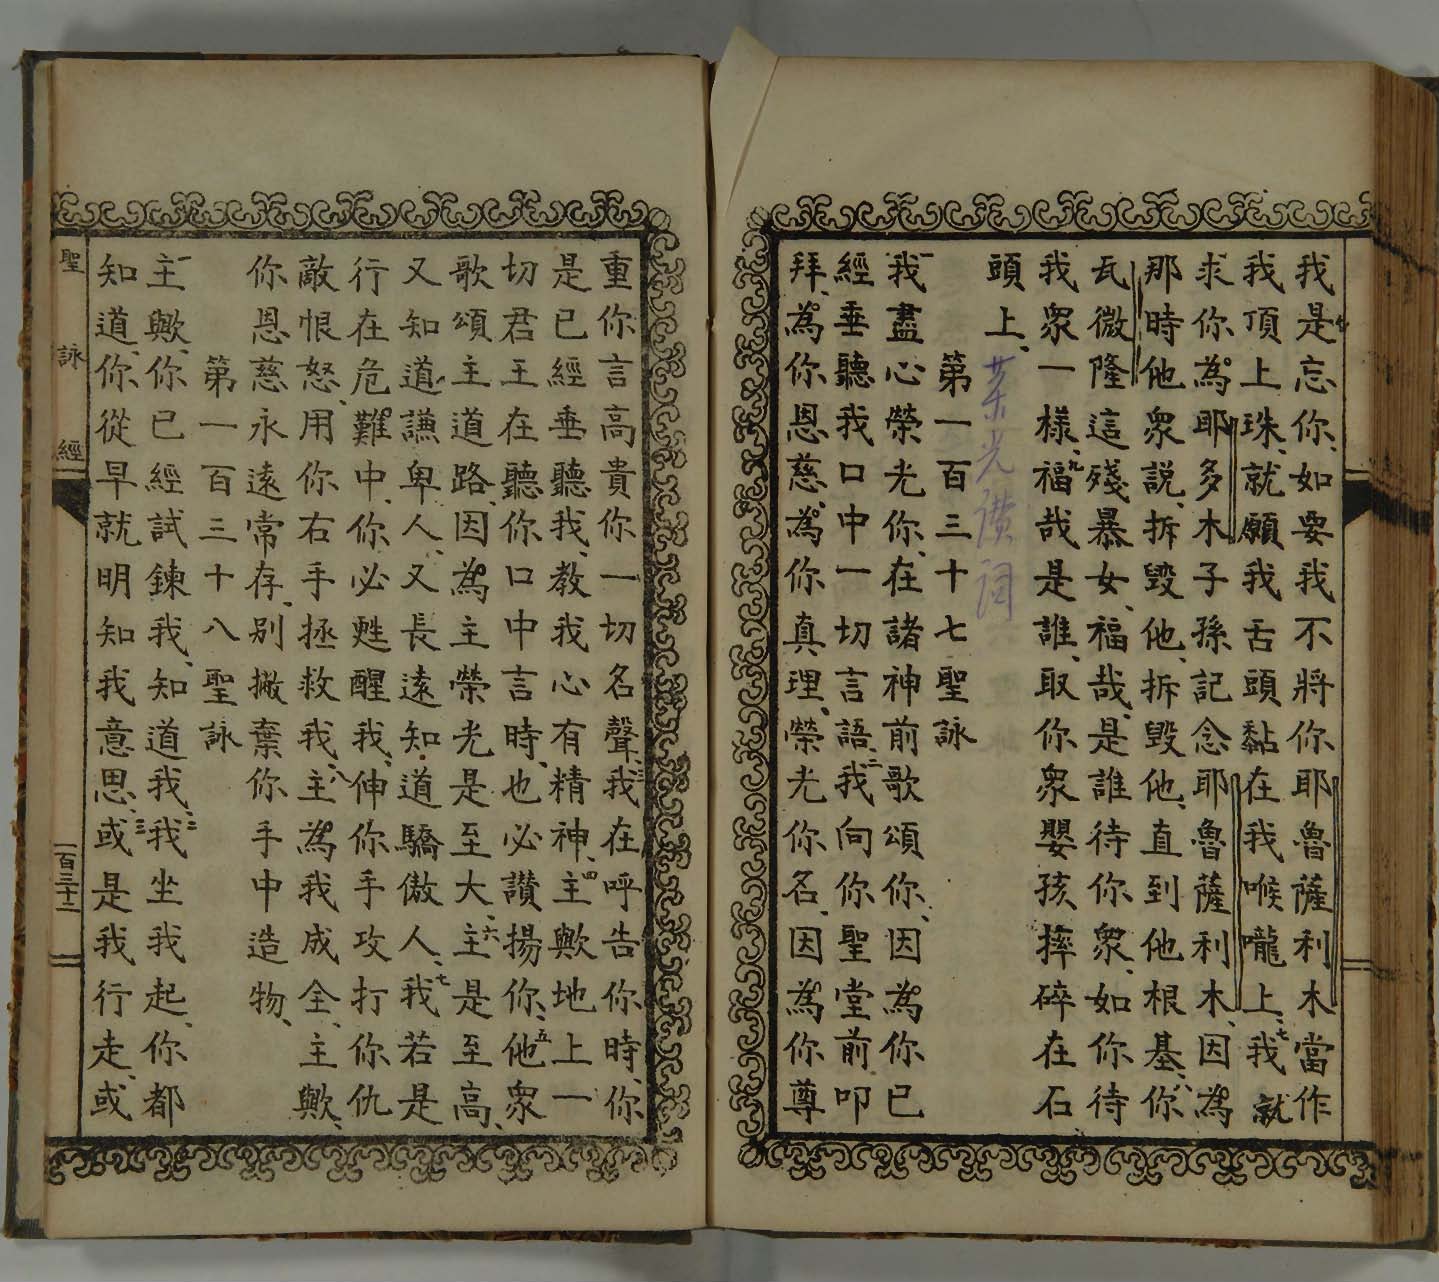 我是忘你、如要我不將你耶魯薩利木當作
我頂上珠、就願我舌頭黏在我喉嚨上、七我就
求你為耶多木子孫記念耶魯薩利木、因為
那時他衆説、拆毀他、拆毀他、直到他根基、八你
瓦微隆這殘暴女、福哉、是誰待你衆、如你待
我衆一樣、九福哉是誰、取你衆嬰孩摔碎在石
頭上、
榮光讃詞
第一百三十七聖詠
一我盡心榮光、你、在諸神前歌頌你、因為你已
經垂聽我口中一切言語、二我向你聖堂前叩
拜、為你恩慈、為你真理、榮光你名、因為你尊
重你言高貴你一切名聲、三我在呼告你時、你
是已經垂聽我、教我心有精神、四主歟地上一
切君王在聽你口中言時、也必讃揚你、五他衆
歌頌主道路、因為主榮光是至大、六主是至高、
又知道謙卑人、又長遠知道驕傲人、七我若是
行在危難中、你必甦醒我、伸你手攻打你仇
敵恨怒、用你右手拯救我、八主為我成全、主歟、
你恩慈永遠常存、別搬棄你手中造物、
第一百三十八聖詠
一主歟、你已經試鍊我、知道我、二我坐我起、你都
知道、你從早就明知我意思、三或是我行走、或
聖詠經
一百三十二